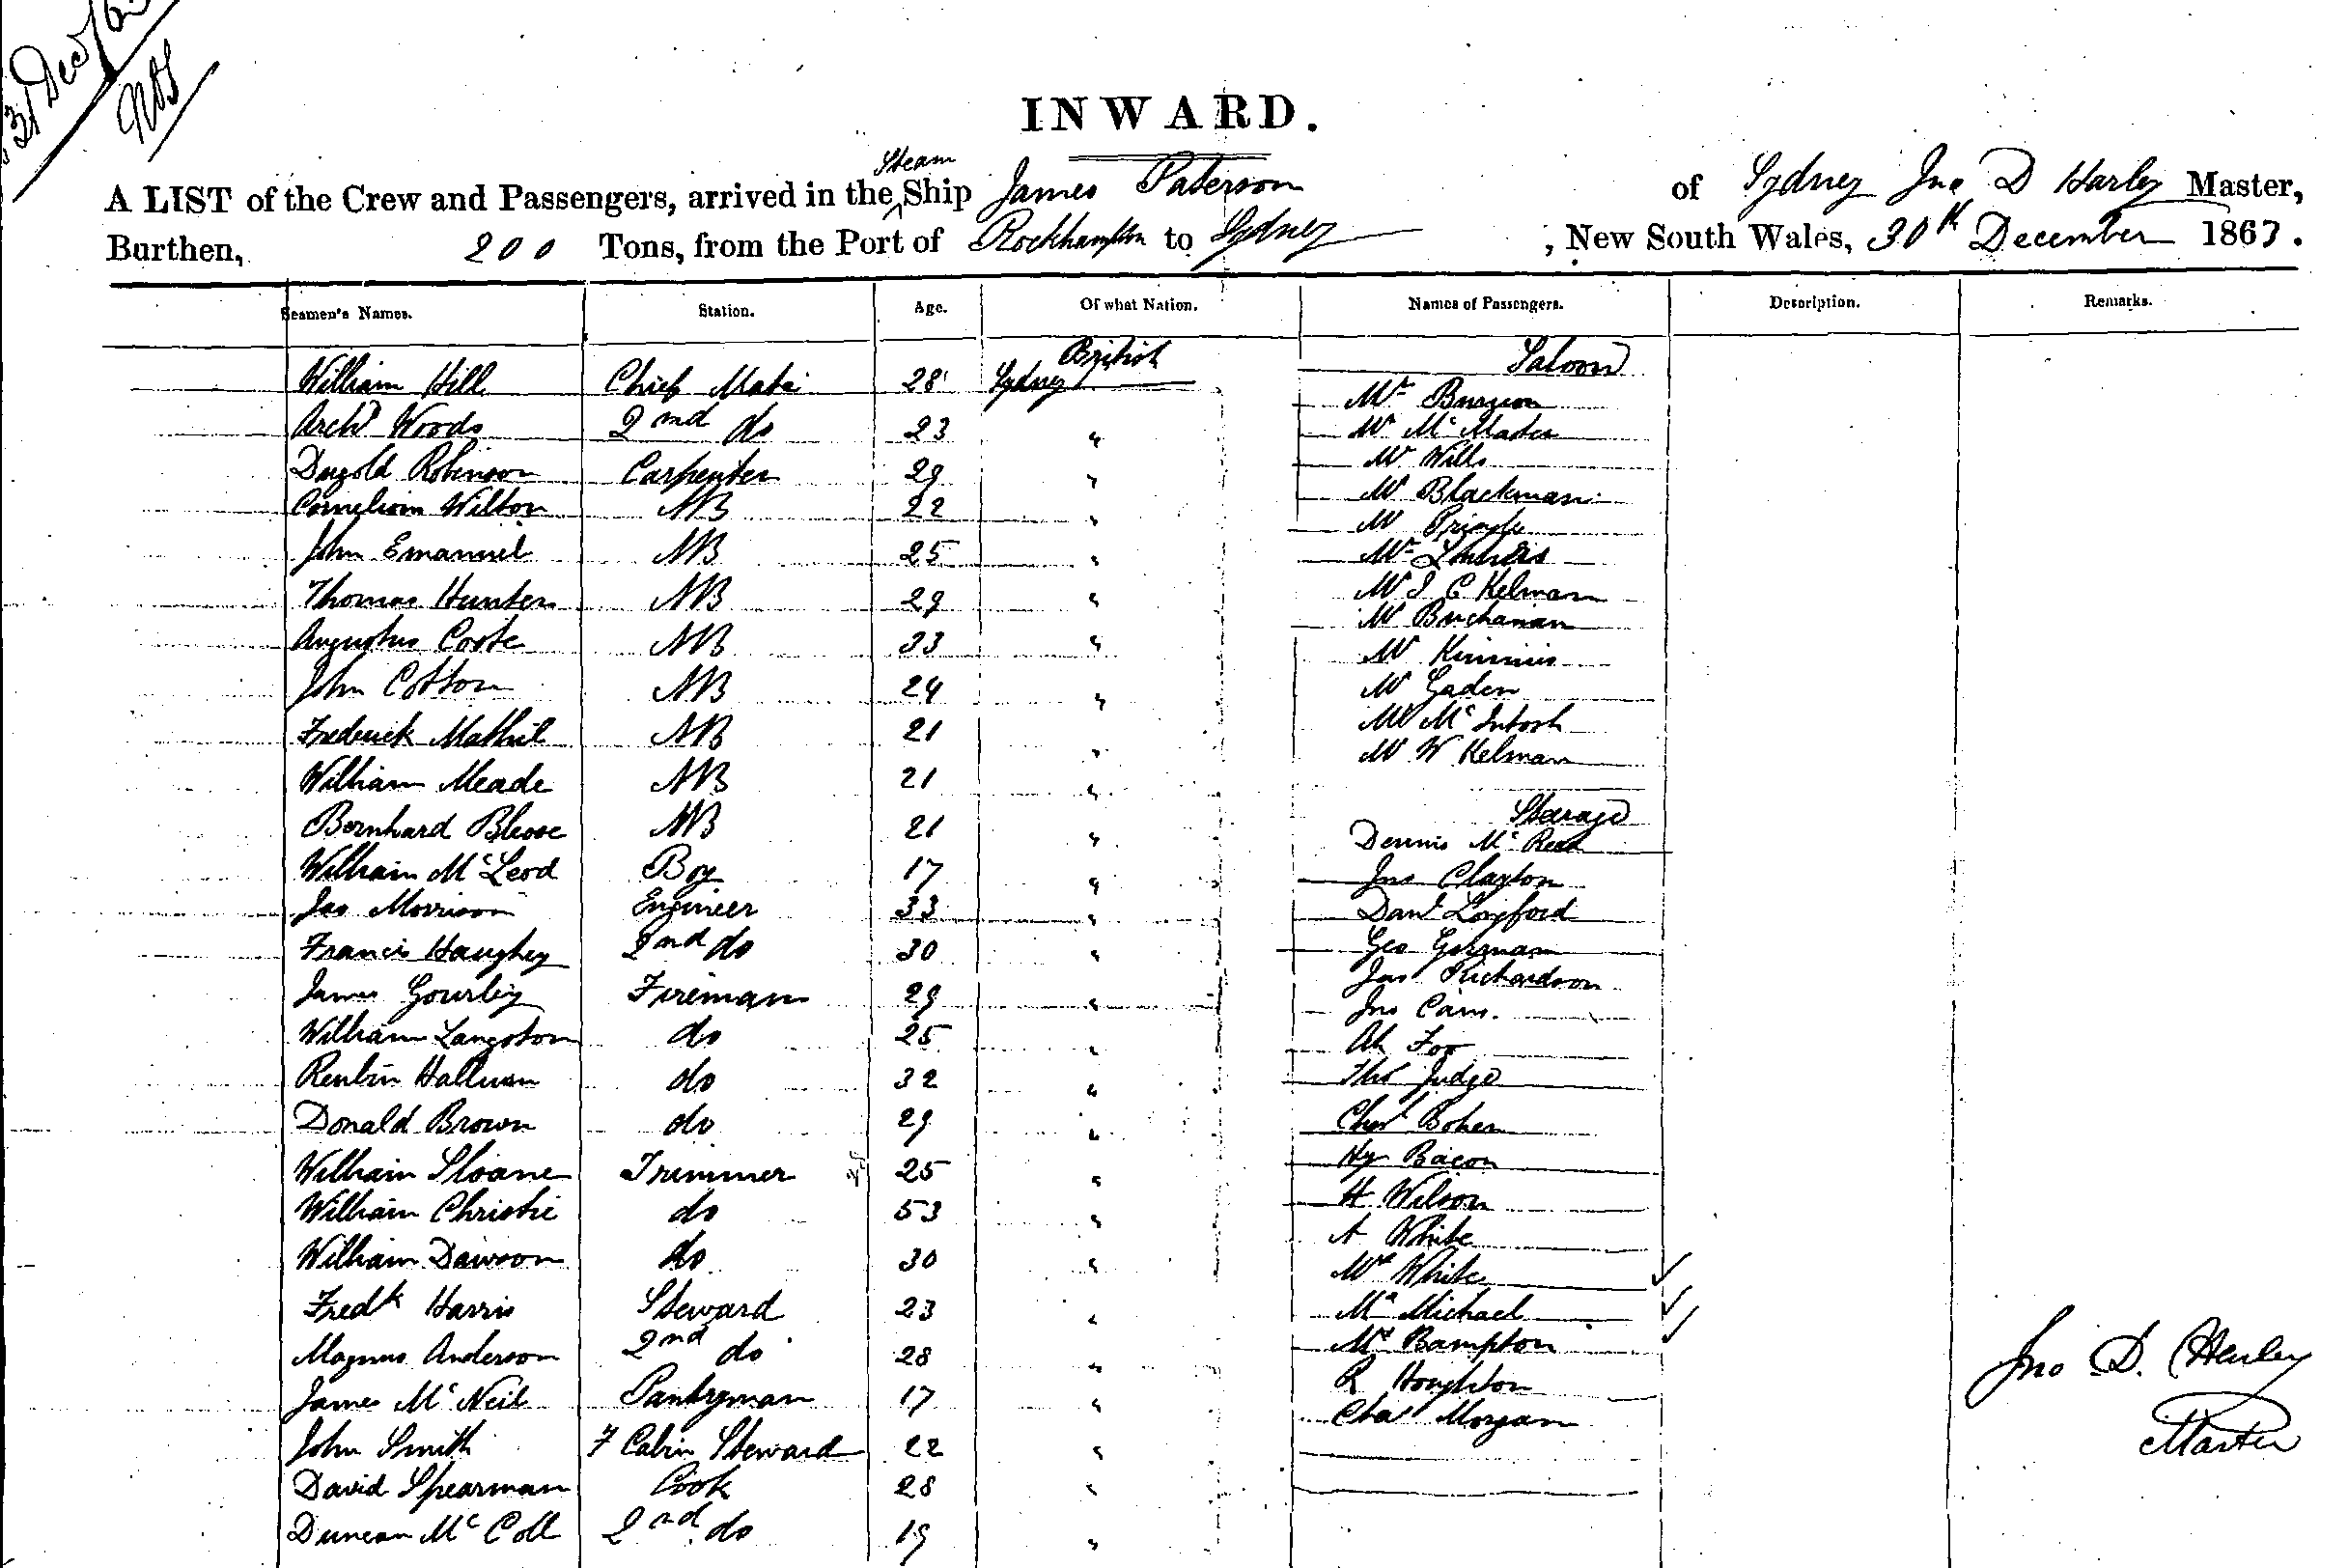 31 Dec/63
INWARD.
A LIST of the Crew and Passengers, arrived in the Steam Ship James Paterson of Sydney Jno D Harley Master,
Burthen, 200 Tons, from the Port of Rockhampton to Sydney, New South Wales, 30th December 1863.
Seamen's Names. Station. Age. Of what Nation. Names of Passengers. Description. Remarks.
British Saloon
William Hill Chief Mate 28 Sydney
Mr
Archd Woods 2nd do 23 "
Mr Mc Master
Dugold Robinson Carpenter 29 "
Mr Wills
Cornelious Wilton AB 22 "
Mr Blackman
Mr Pringle
John Emanuel AB 25 "
Mr
Thomas Hunter AB 29 "
Mr J C Kelman
Mr Buchanan
Augustus Coote AB 33 "
Mr
John Cotton AB 24 "
Mr Gaden
Frederick AB 21 "
Mr Mc Intosh
Mr W Kelman
William Meade AB 21 "
Bernhard AB 21 "
Steerage
Dennis Mc
William McLeod Boy 17 "
Jno Clayton
Jas Morrison Engineer 33 "
Danl Longford
Francis Haughey 2nd do 30 "
Geo Gorman
Jas Richardson
James Gourley Fireman 29 "
Jno Cain.
William Langston do 25 "
Ah Foo
Reubin do 32 "
Thos Judge
Donald Brown do 29 "
Chas Bohen
William Sloane Trimmer 25 "
Hy Bacon
William Christie do 53 "
H Wilson
A White
William Dawson do 30 "
Mrs White ✓
Fredk Harris Steward 23 "
Mrs Michael ✓
Magnus Anderson 2nd do 28 "
Mrs Bampton ✓
James Mc Neil Pantryman 17 "
R Houghton
Chas Morgan
Jno D. Henley
Master
John Smith F Cabin Steward 22 "
David Spearman Cook 28 "
Duncan Mc Coll 2nd do 19 "